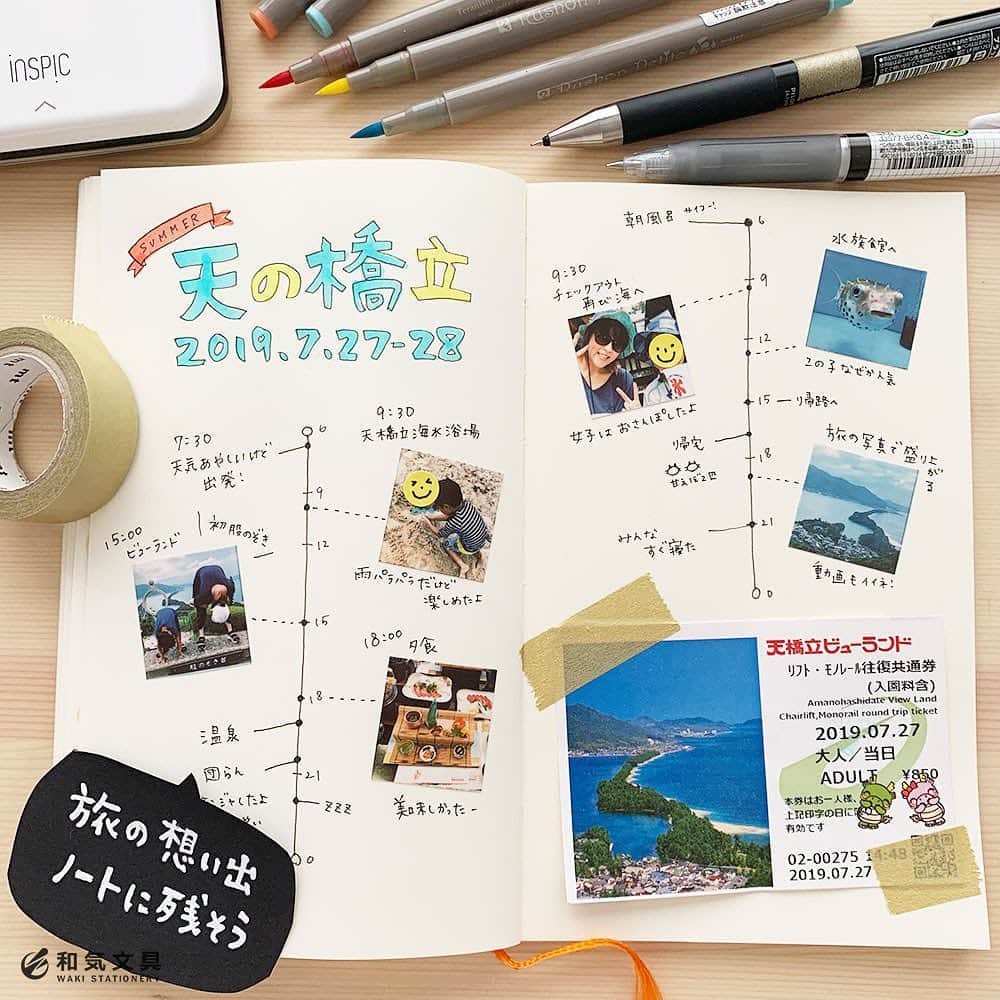 inSPiC
Rushon Petite
PILOT
SUMMER
天の橋立
2019.7.27-28
6
7:30
天気あやしいけど
出発!
9:30
天橋立海水浴場
9
12
雨パラパラだけど
楽しめたよ
15:00
ビューランド
初股のぞき
15
18:00
夕食
18
美味しかったー
温泉
団らん
21
zzz
0
朝風呂 サイコー!
6
9:30
チェックアウト
再び海へ
9
水族館へ
12
この子なぜか人気
女子はおさんぽしたよ
15
帰路へ
帰宅
18
甘えび2匹
旅の写真で盛り上がる
動画もイイネ!
21
みんな
すぐ寝た
0
天橋立ビューランド
リフト・モノレール往復共通券
(入園料含)
Amanohashidate View Land
Chairlift,Monorail round trip ticket
2019.07.27
大人/当日
ADULT ¥850
本券はお一人様、
上記印字の日に
有効です
02-00275 14:48
2019.07.27
mt
旅の想い出
ノートに残そう
和気文具
WAKI STATIONERY